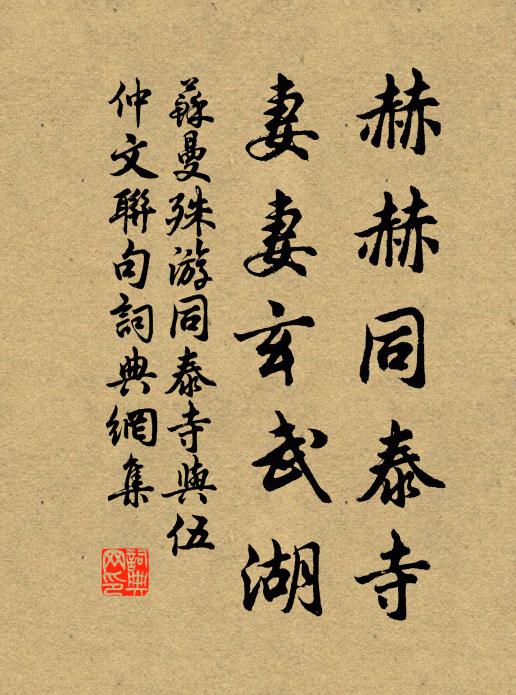 赫赫同泰寺
妻妻玄武湖
蘇曼殊游同泰寺與伍
仲文聯句詞典網集
詞典网印